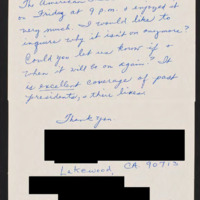 The American
on Friday at 9 p.m. & enjoyed it
very much. I would like to
inquire why it isn't on anymore?
Could you let us know if &
when it will be on again? It
is excellent coverage of past
presidents, & their lives.
Thank you
Lakewood, CA 90713